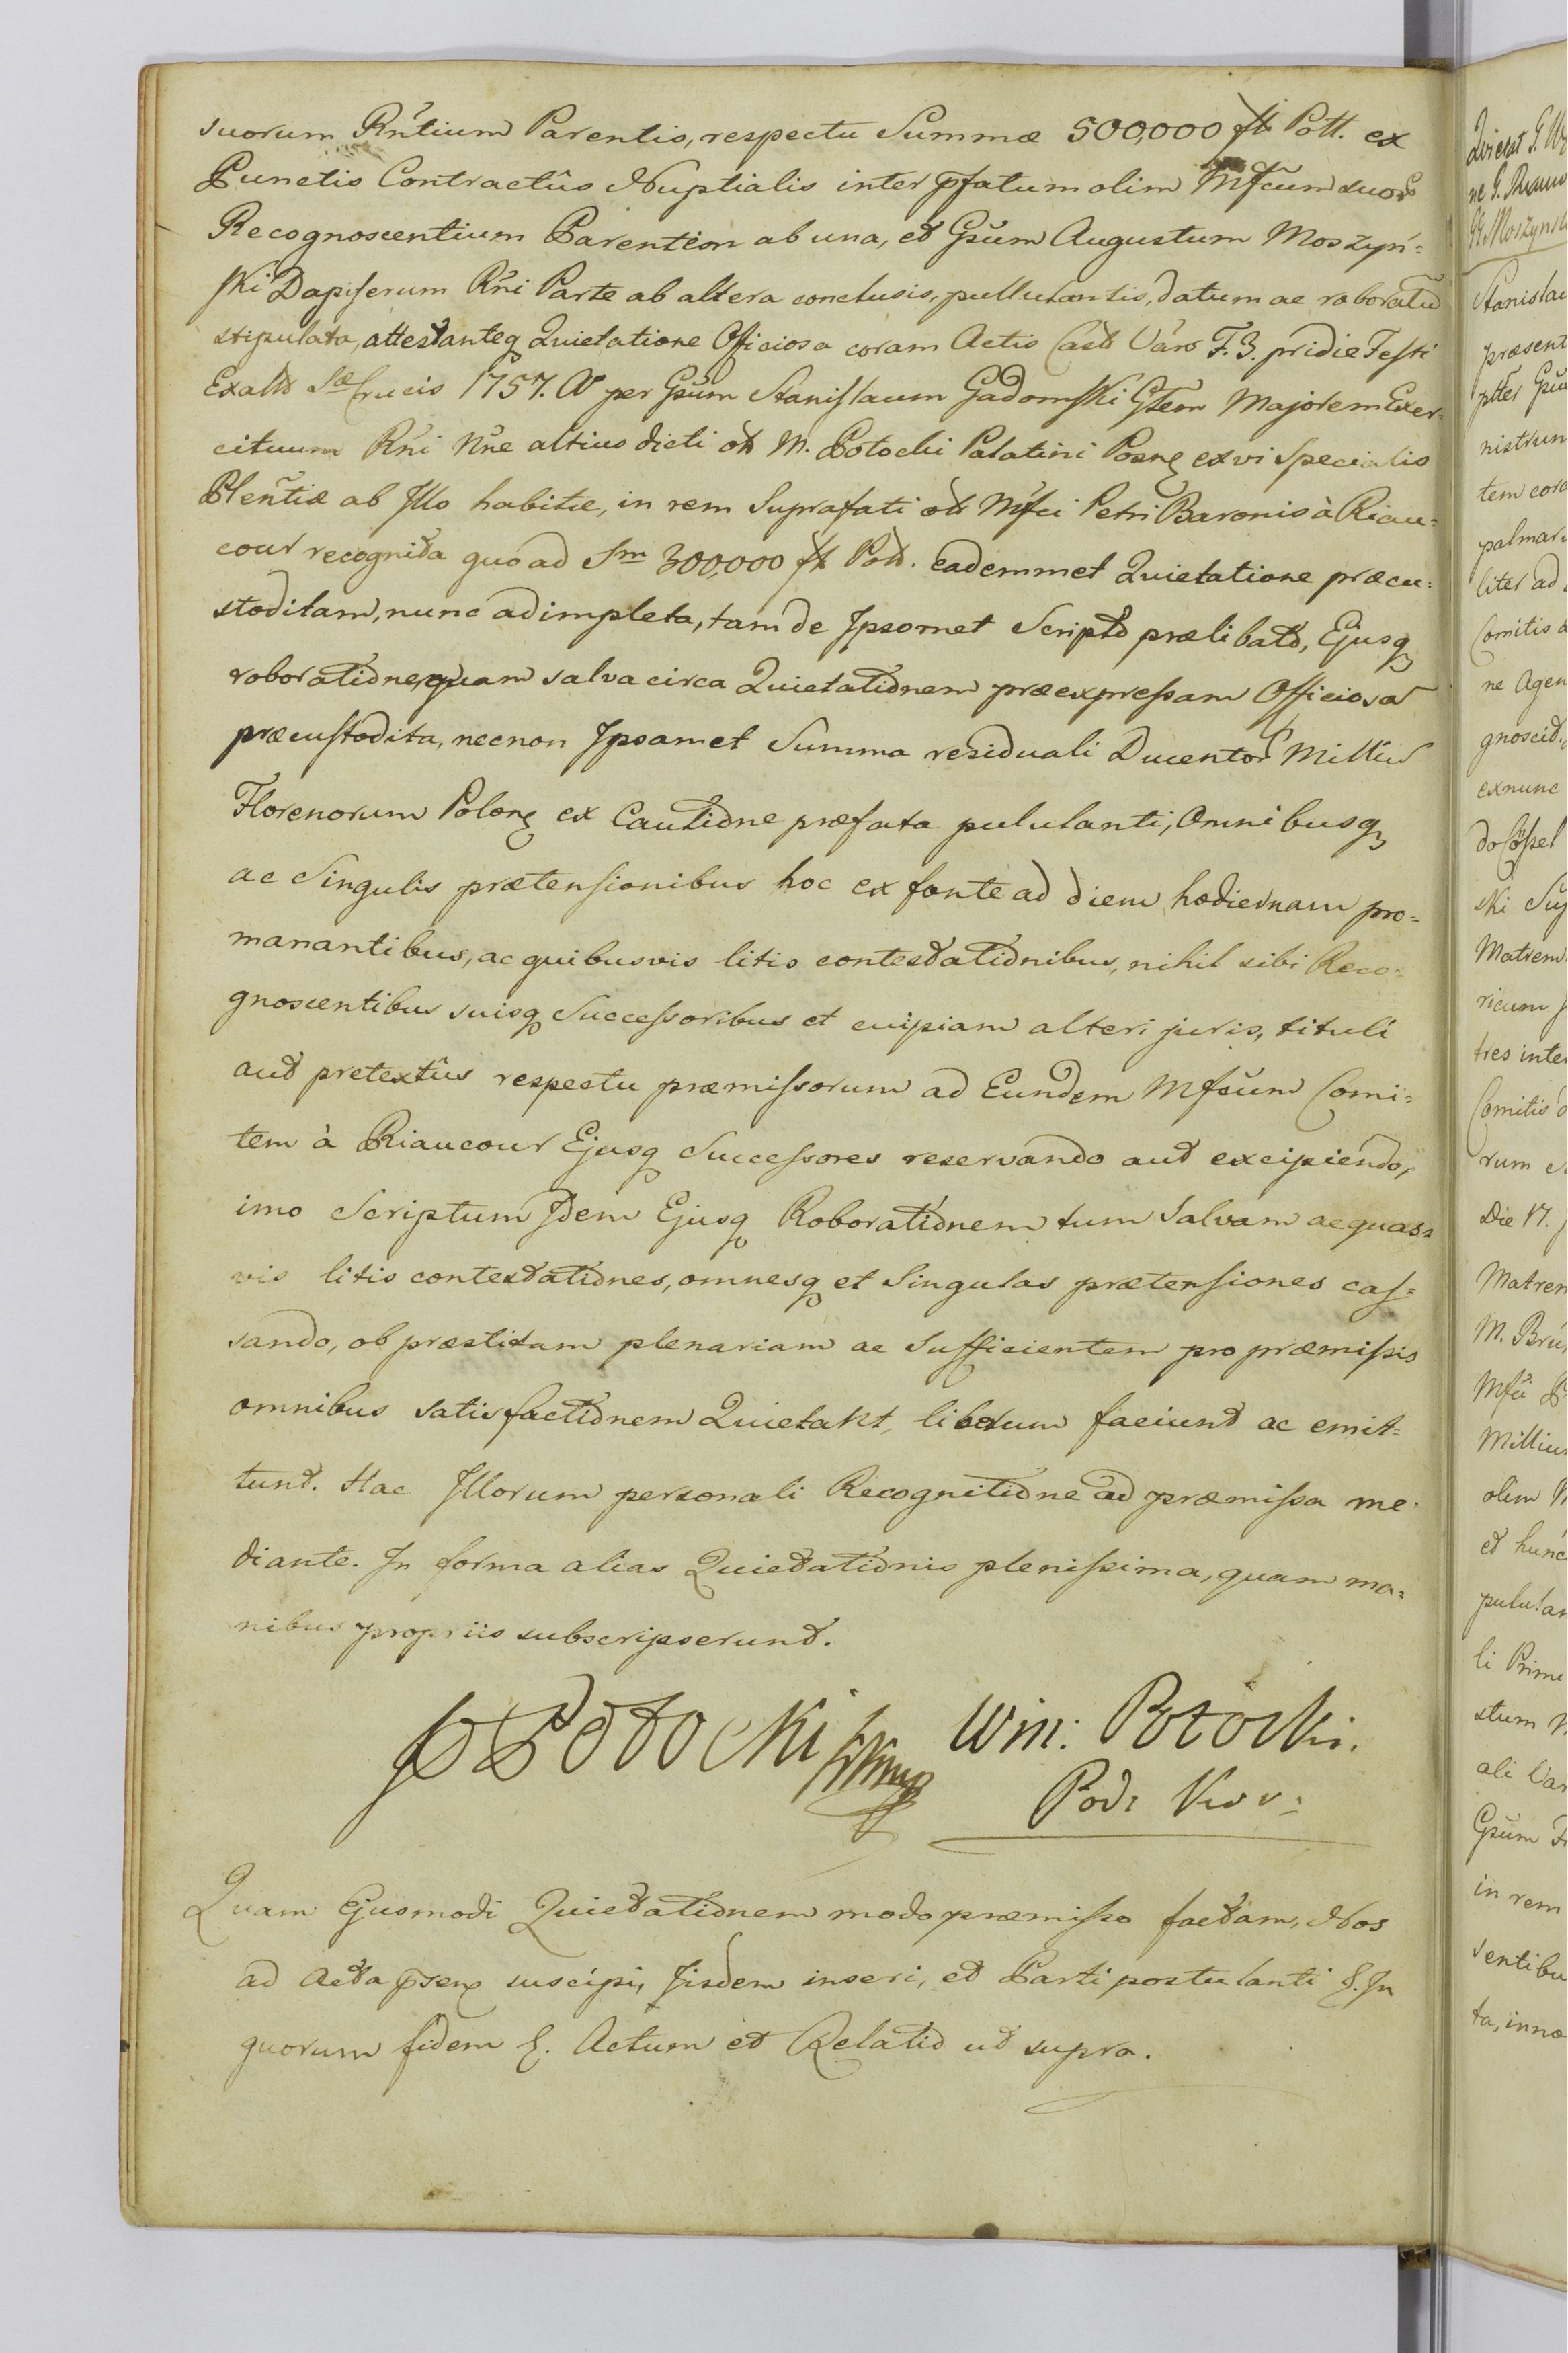 suorum Rn̄tium Parentis, respectu Summæ 500,000 fl Poll. ex
Punctis Contractûs Nuptialis inter p̄fatum olim Mfcum suor
Recognoscentium Parentem ab una, et Gsum Augustum Moszyń=
ski Dapiferum Rn̄i Parte ab altera conclusis, pullulantis, datum ac roboratu
stipulata, attestanteq Quietatione Officiosa coram Actis Cast Varo F. 3. pridie Festi
Exalto Sæ Crucis 1757. A per Gsum Stanislaum Gadomski Gtem Majorem Exer=
cituum Rn̄i Nne altius dicti ol M. Potocki Palatini Posnę ex vi Specialis
Plen̄tiæ ab Illo habitæ, in rem Suprafati ol Mfci Petri Baronis à Riau=
cour recognita quo ad Sm 300,000 fl Poll. eademmet Quietatione præcu=
stoditam, nunc adimpleta, tam de Ipsomet Scripto prælibato, Ejusq
roboratione, quam salva circa Quietationem præexpressam Officiosa
præcustodita, necnon Ipsamet Summa residuali Ducentor Milliu
Florenorum Polonę ex Cautione præfata pululanti, Omnibusq
ac Singulis prætensionibus hoc ex fonte ad diem hodiernam pro=
manantibus, ac quibusvis litis contestationibus, nihil sibi Reco=
gnoscentibus suisq Successoribus et cuipiam alteri juris, tituli
aut pretextûs respectu præmissorum ad Eundem Mfcum Comi=
tem à Riaucour Ejusq Successores reservando aut excipiendo,
imo Scriptum Idem Ejusq Roborationem tum Salvam ac quas=
vis litis contestationes, omnesq et Singulas prætensiones cas=
sando, ob præstitam plenariam ac Sufficientem pro præmissis
omnibus satisfactionem Quietant, liberum faciunt ac emit=
tunt. Hac Illorum personali Recognitione ad præmissa me=
diante. In forma alias Quietationis plenissima, quam ma=
nibus propriis subscripserunt.
Potocki Win: Potocki.
Pod: Kiov:
Quam Ejusmodi Quietationem modo præmisso factam, Nos
ad Acta p̄sen suscipi, Iisdem inseri, et Parti postulanti &. In
quorum fidem &. Actum et Relatio ut supra.
Stanislau
præsent
nistrum
tem cora
palmari
liter ad
Comitis
ne Agen
gnoscit
exnunc
ski Sup
Matrem
ricum
tres inter
Comitis
rum
Die 17.
Matrem
M. Brü
Mfci
Milliu
olim
et hunc
pululan
li Prime
stum
ali Var
Gsum
in rem
sentibu
ta, inno